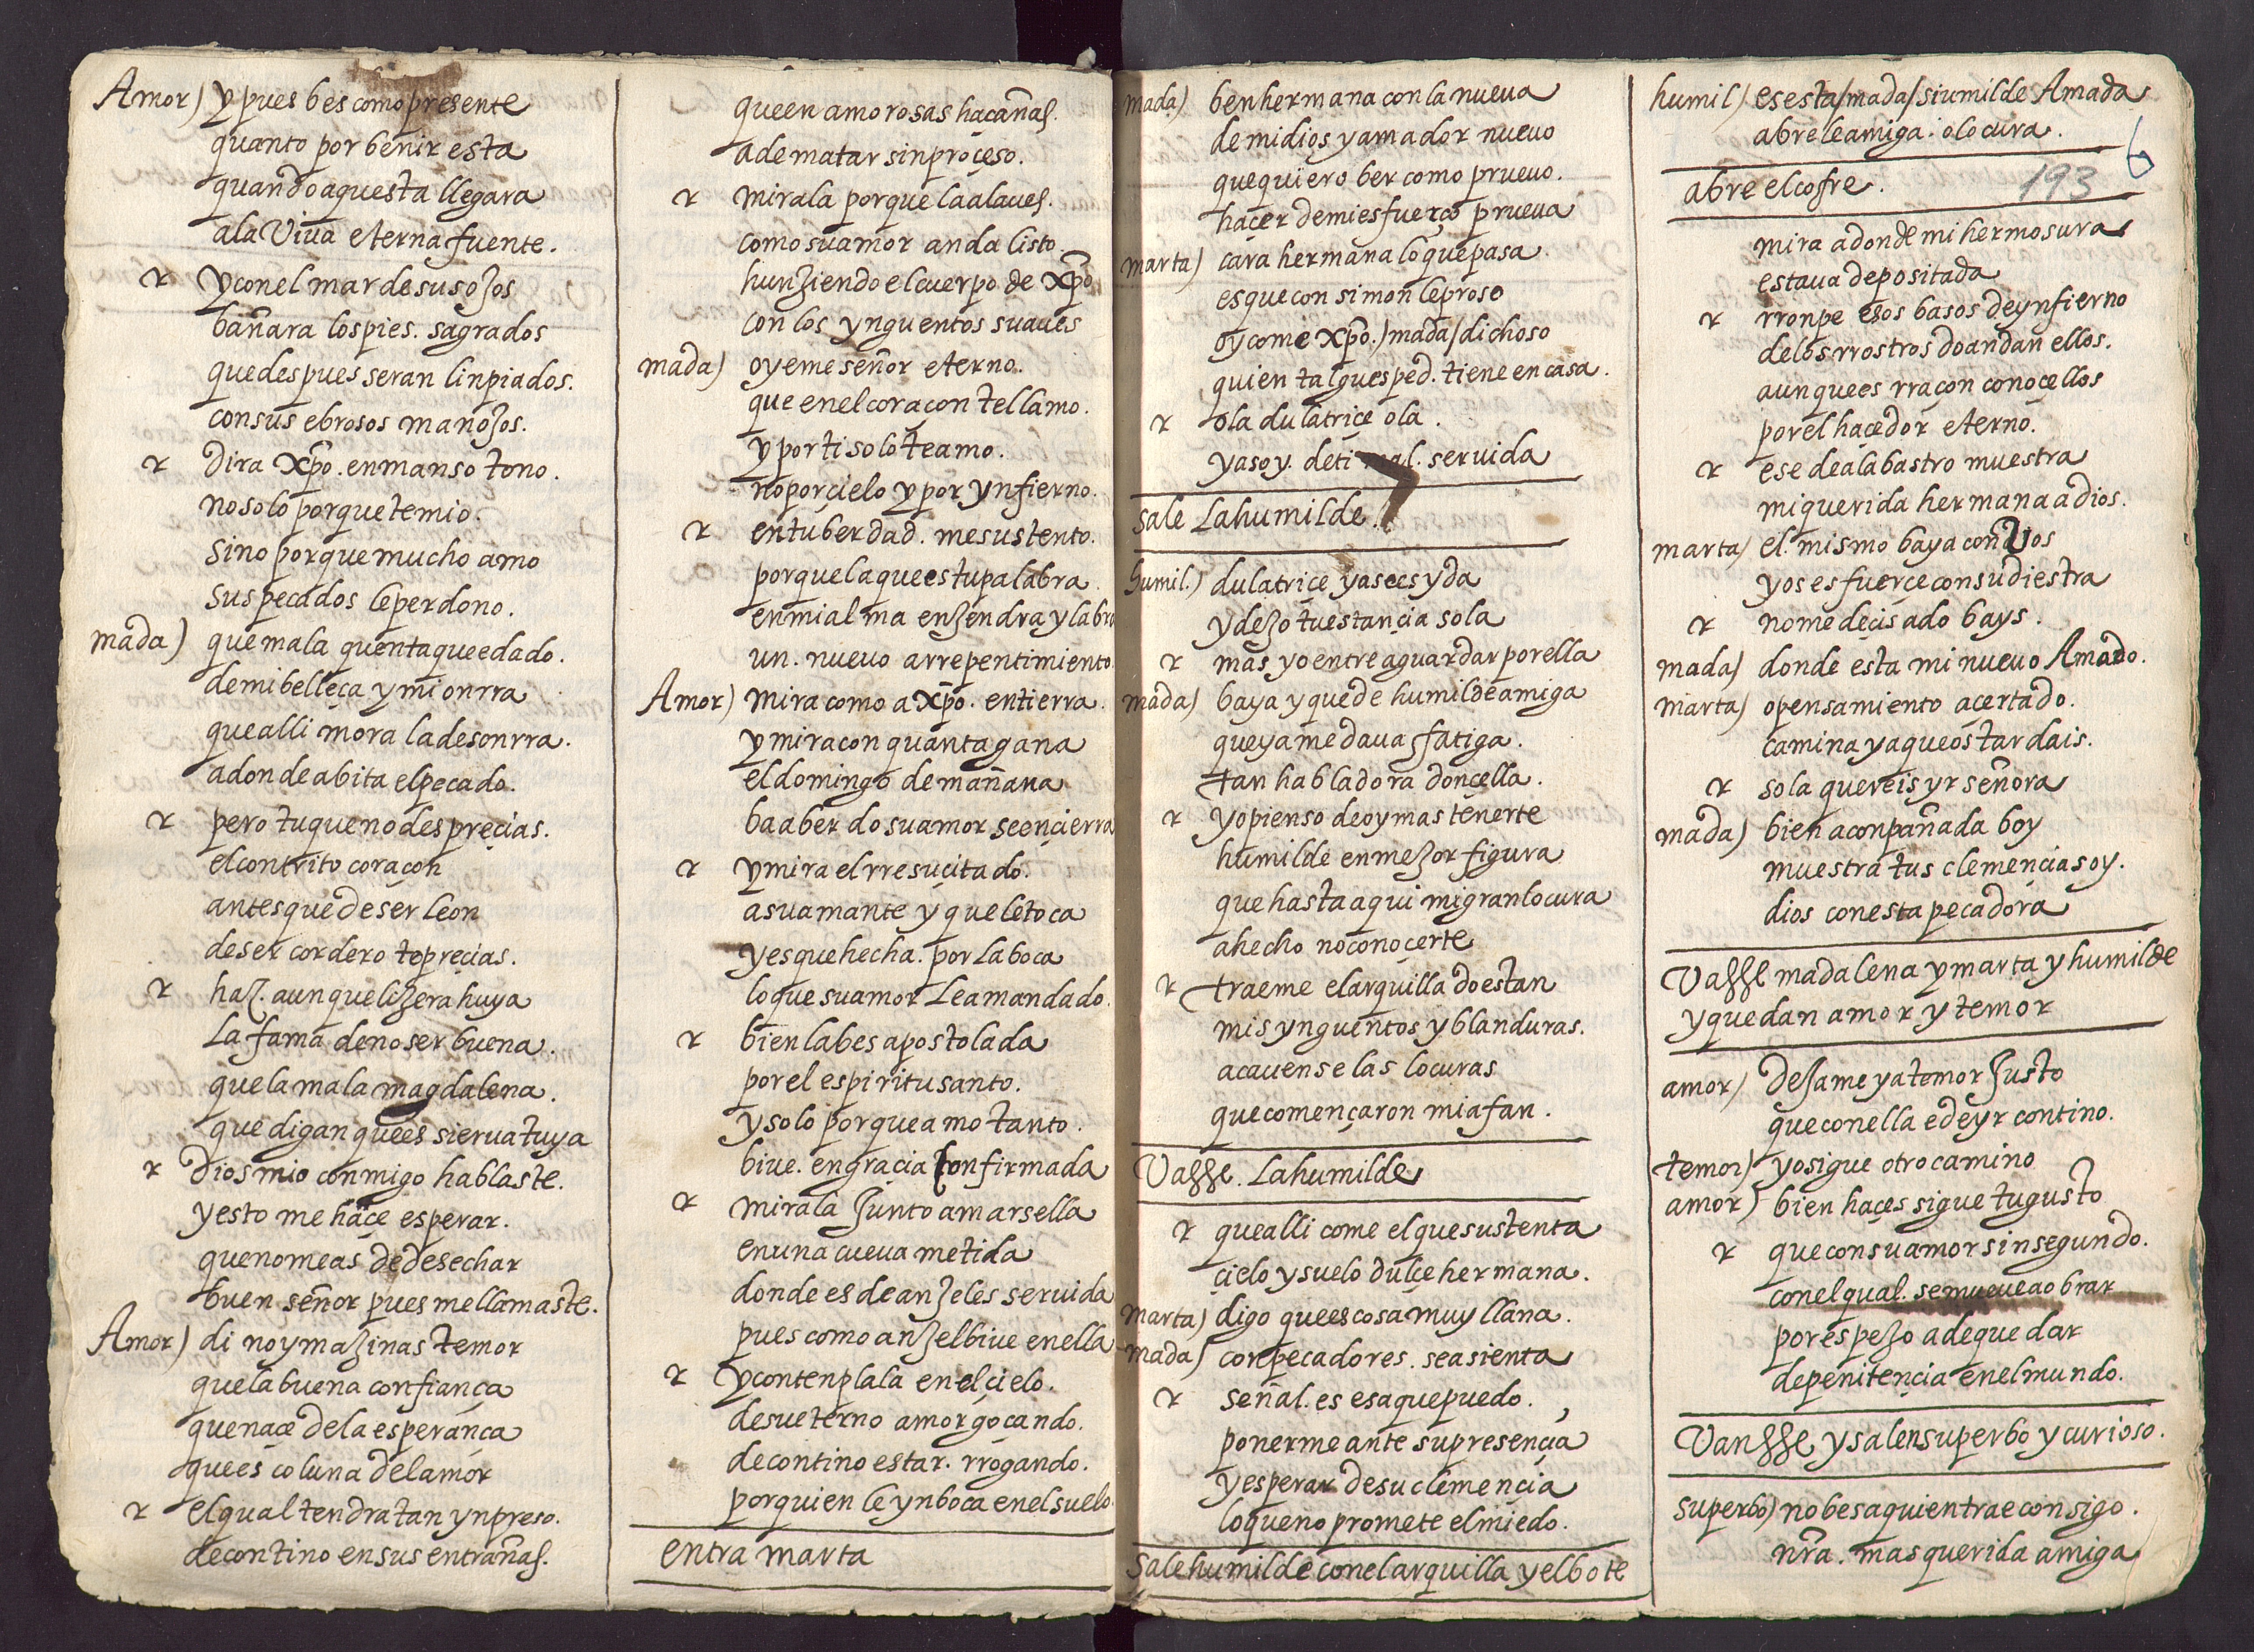 Amor) y pues bes como presente
quanto por benir esta
quando aquesta llegara
ala Viva eterna fuente.
r y con el mar de sus ojos
bañara los pies. sagrados
que despues seran linpiados.
con sus ebrosos manojos.
r dira xpo. en manso tono.
no solo porque temio.
sino porque mucho amo
sus pecados le perdono.
mada) que mala quenta que e dado.
de mi belleça y mi onrra
que alli mora la desonrra.
adonde abita el pecado.
r pero tu que no desprecias.
el contrito coraçon
antes que de ser leon
de ser cordero te precias.
r haz. aunque lijera huya
la fama de no ser buena.
que la mala magdalena.
que digan que es sierva tuya
r dios mio conmigo hablaste.
y esto me haçe esperar.
que no me as de desechar
buen señor pues me llamaste.
Amor) di no ymajinas temor
que la buena confiança
que naçe de la esperança
que es coluna del amor
r el qual tendra tan ynpreso.
de contino en sus entrañas.
que en amorosas haçañas.
a de matar sin proçeso.
r mirala porque la alaves.
como su amor anda listo.
hunjiendo el cuerpo de xpo
con los ynguentos suaves
mada) oyeme señor eterno.
que en el coraçon te llamo.
y por ti solo te amo.
no por çielo y por ynfierno.
r en tu berdad. me sustento.
porque la que es tu palabra
en mi alma enjendra y labra
un. nuevo arrepentimiento.
Amor) mira como a xpo. entierra.
y mira con quanta gana
el domingo de mañana
ba a ber do su amor se ençierra
r y mira el rresuçitado.
a su amante y que le toca
y es que hecha. por la boca
lo que su amor le a mandado.
r bien la bes apostolada
por el espiritu santo.
y solo porque amo tanto.
bive. en graçia Confirmada
r mirala junto a marsella
en una cueva metida
donde es de anjeles servida
pues como anjel bive en ella
r y contenplala en el çielo.
de su eterno amor goçando.
de contino estar. rrogando.
por quien le ynboca en el suelo.
entra marta
mada) ben hermana con la nueva
de mi dios y amador nuevo
que quiero ber como pruevo.
haçer de mi esfuerço prueva
marta) cara hermana lo que pasa
es que con simon leproso
oy come xpo./mada/dichoso
quien tal guesped. tiene en casa.
r ola dulatriçe ola.
ya soy. de ti mal. servida
sale La humilde.
humil.) dulatriçe ya se es yda
y dejo tu estançia sola
r mas yo entre a guardar por ella
mada) baya y quede humilde amiga
que ya me dava fatiga.
tan habladora donçella.
r yo pienso de oy mas tenerte
humilde en mejor figura
que hasta aqui mi gran locura
a hecho no conoçerte
r traeme el arquilla do estan
mis ynguentos y blanduras.
acavense las locuras
que començaron mi afan.
Vasse. La humilde
r que alli come el que sustenta
çielo y suelo dulçe hermana.
marta) digo que es cosa muy llana.
mada) con pecadores. se asienta
r señal. es esa que puedo.
ponerme ante su presençia
y esperar de su clemençia
lo que no promete el miedo.
Sale humilde con el arquilla y el bote
humil) es esta/mada/si umilde Amada
abre le amiga. o locura.
abre el cofre.
6
193
mira adonde mi hermosura
estava depositada
r rronpe esos basos de ynfierno
de los rrostros do andan ellos.
aunque es rraçon conoçellos
por el haçedor eterno.
r ese de alabastro muestra
mi querida hermana a dios.
marta) el. mismo baya con Vos
y os esfuerçe con su diestra
r no me deçis a do bays.
mada) donde esta mi nuevo Amado.
marta) o pensamiento açertado.
camina ya que os tardais.
r sola quereis yr señora
mada) bien aconpañada boy
muestra tus clemençias oy.
dios con esta pecadora
Vasse madalena y marta y humilde
y quedan amor y temor
amor) dejame ya temor justo
que con ella e de yr contino.
temor) yo sigue otro camino
amor) bien haçes sigue tu gusto
r que con su amor sin segundo.
con el qual. se mueve a obrar
por espejo a de quedar
de penitençia en el mundo.
Vansse y salen superbo y curioso.
superbo) no bes a quien trae consigo.
nra. mas querida amiga